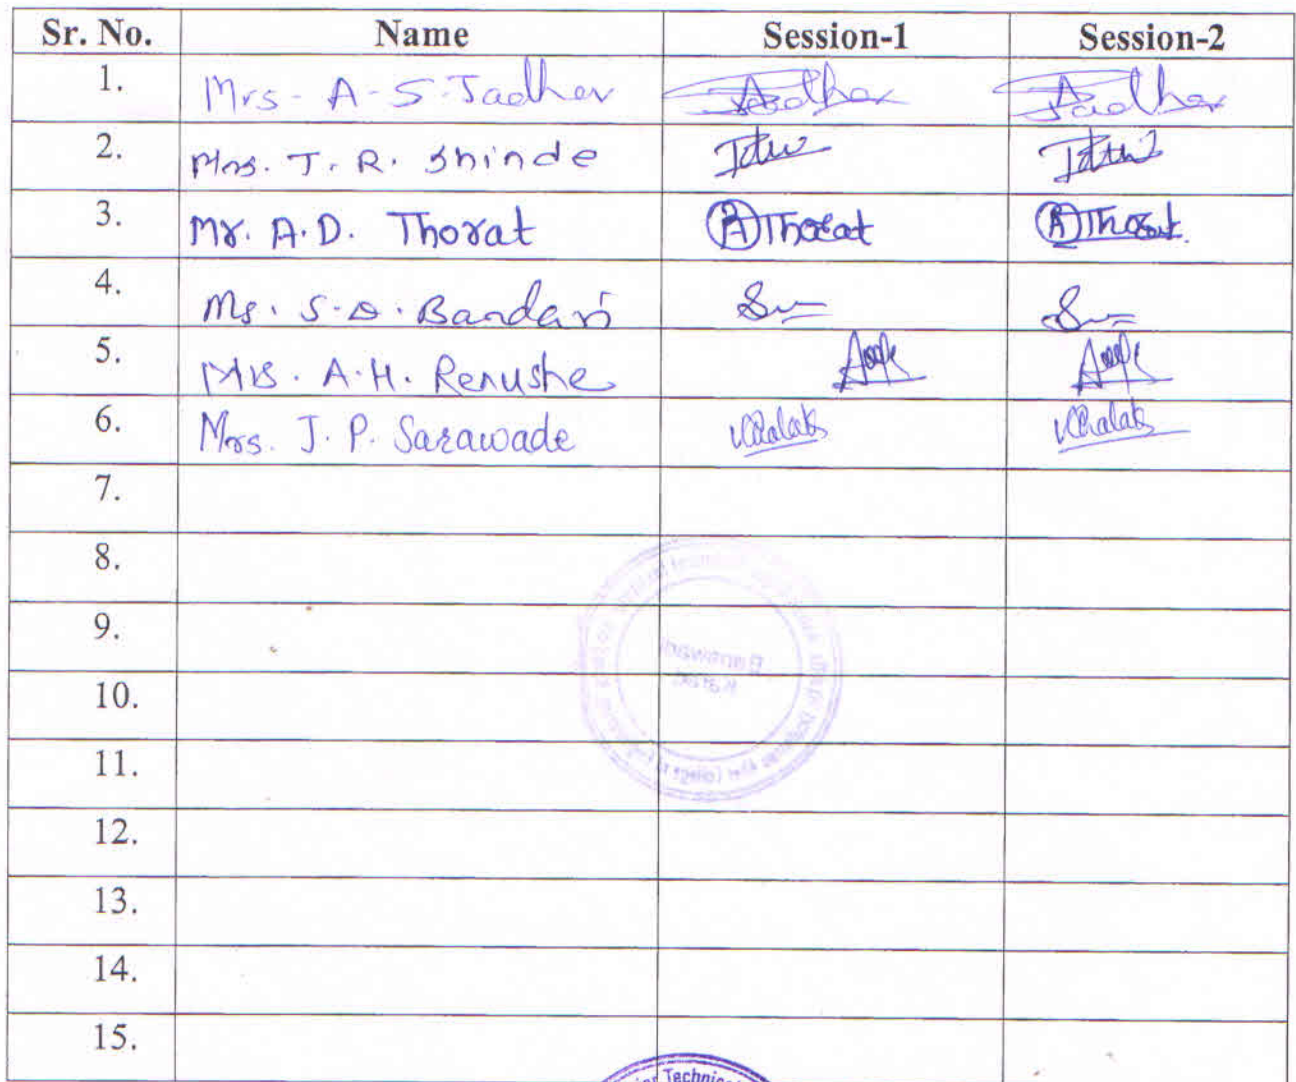 Sr. No. Name Session-1 Session-2
1. Mrs - A - S - Jadhav Jadhav Jadhav
2. Mrs. T. R. Shinde
3. Mr. A. D. Thorat A Thorat A Thorat.
4. Ms. S. D. Bandari
5. Mrs. A. H. Renushe
6. Mrs. J. P. Sarawade
7.
8.
9.
10.
11.
12.
13.
14.
15.
Technic